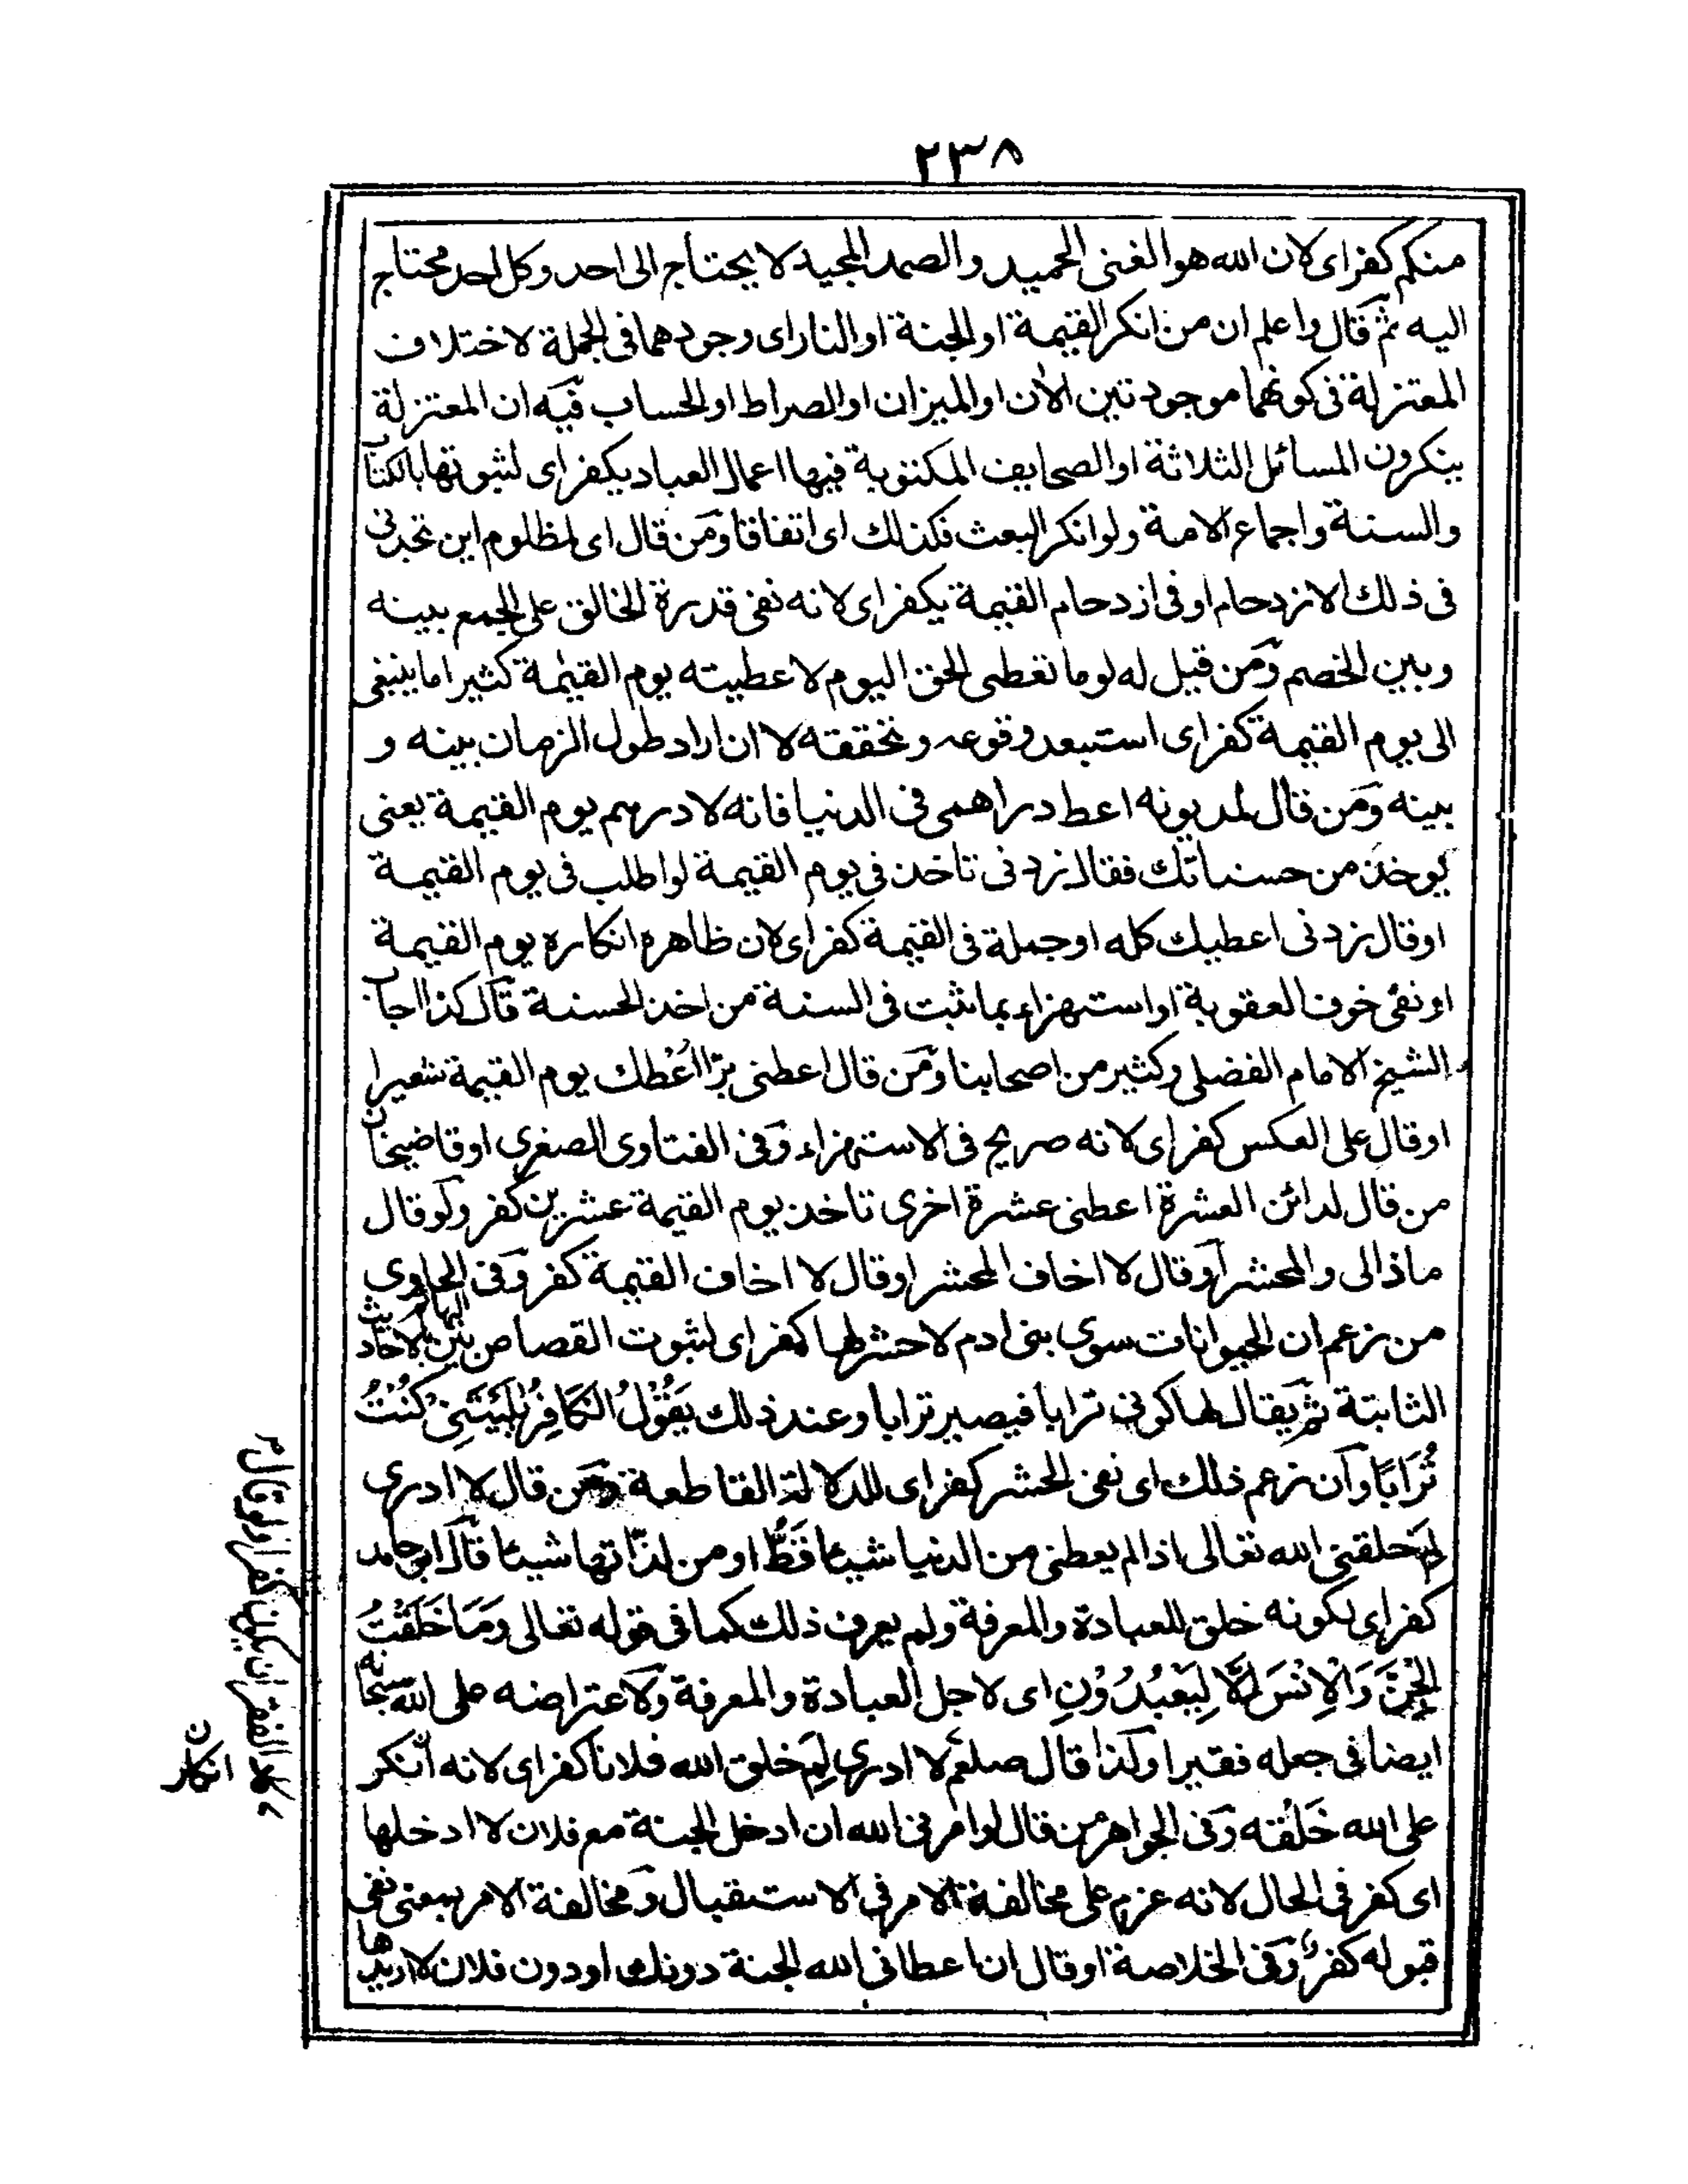 ٢٣٨
منكم كفر اى لان الله هو الغنى الحميد والصمد المجيد لا يحتاج الى احد وكل احد محتاج
اليه ثم قال واعلم ان من انكر القيمة او الجنة او النار اى وجودهما فى الجملة لاختلاف
المعتزلة فى كونهما موجودتين الان او الميزان او الصراط او الحساب فيه ان المعتزلة
ينكرون المسائل الثلاثة او الصحايف المكتوبة فيها اعمال العباد يكفر اى لثبوتها بالكتاب
والسنة واجماع الامة ولو انكر البعث فكذلك اى اتفاقا ومن قال اى لمظلوم اين تجدنى
فى ذلك الازدحام او فى ازدحام القيمة يكفر اى لانه نفى قدرة الخالق على الجمع بينه
وبين الخصم ومن قيل له لو ما تعطى الحق اليوم لاعطيته يوم القيمة كثيرا ما ينبغى
الى يوم القيمة كفر اى استبعد وقوعه وتحققه لا ان اراد طول الزمان بينه و
بينه ومن قال لمديونه اعط دراهمى فى الدنيا فانه لا درهم يوم القيمة يعنى
يوخذ من حسناتك فقال زدنى تاخذ فى يوم القيمة لو اطلب فى يوم القيمة
او قال زدنى اعطيك كله او جملة فى القيمة كفر اى لان ظاهره انكاره يوم القيمة
او نفى خوف العقوبة او استهزاء بما ثبت فى السنة من اخذ الحسنة قال كذا اجاب
الشيخ الامام الفضلى وكثير من اصحابنا ومن قال اعطنى برّا اُعْطك يوم القيمة شعيرا
او قال على العكس كفر اى لانه صريح فى الاستهزاء وفى الفتاوى الصغرى او قاضيخان
من قال لدائن العشرة اعطنى عشرة اخرى تاخذ يوم القيمة عشرين كفر ولو قال
ماذا لى والمحشر او قال لا اخاف المحشر او قال لا اخاف القيمة كفر وفى الحاوى
من زعم ان الحيوانات سوى بنى ادم لا حشر لها كفر اى لثبوت القصاص بين البهائم بالاحاديث
الثابتة ثم يقال لها كونى ترابا فيصير ترابا وعند ذلك يَقُوْلُ الْكَافِرُ يٰلَيْتَنِىْ كُنْتُ
تُرَابًا وان زعم ذلك اى نفى الحشر كفر اى للدلالة القاطعة ومن قال لا ادرى
لِمَ خلقنى الله تعالى اذا لم يعطنى من الدنيا شيئا قَطُّ او من لذّاتها شيئا قال ابو حامد
كفر اى لكونه خلق للعبادة والمعرفة ولم يعرف ذلك كما فى قوله تعالى وَمَا خَلَقْتُ
الْجِنَّ وَالْاِنْسَ اِلَّا لِيَعْبُدُوْنِ اى لاجل العبادة والمعرفة ولاعتراضه على الله سبحانه
ايضا فى جعله فقيرا وكذا قال صلعم لا ادرى لِمَ خلق الله فلانا كفر اى لانه انكر
على الله خَلْقَه وفى الجواهر من قال لو امرنى الله ان ادخل الجنة مع فلان لا ادخلها
اى كفر فى الحال لانه عزم على مخالفة الامر فى الاستقبال ومخالفة الامر بمعنى نفى
قبوله كفر وفى الخلاصة او قال ان اعطانى الله الجنة دونك او دون فلان لا اريدها